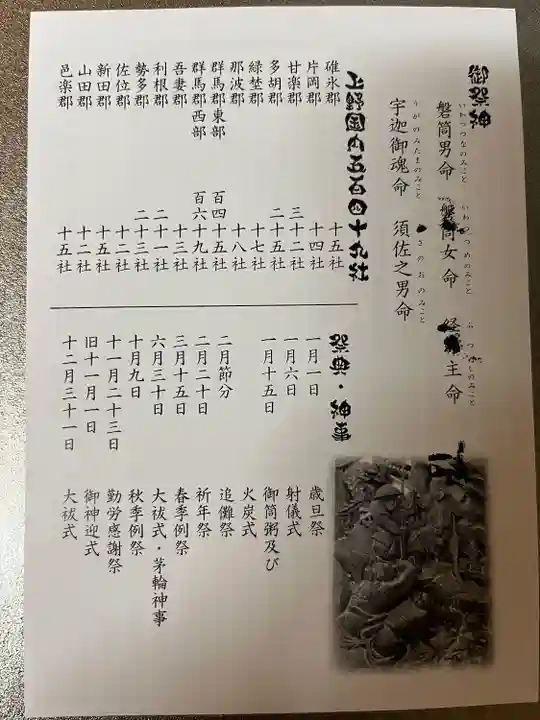 御祭神
いわつつなのみこと
磐筒男命
いわつつめのみこと
磐筒女命
主命
うがのみたまのみこと
宇迦御魂命
すさのおのみこと
須佐之男命
上野国内五百四十九社
碓氷郡 十五社
片岡郡 十四社
甘楽郡 三十二社
多胡郡 二十五社
緑埜郡 十七社
那波郡 十八社
群馬郡東部 百四十五社
群馬郡西部 百六十九社
吾妻郡 十三社
利根郡 二十一社
勢多郡 二十三社
佐位郡 十二社
新田郡 十五社
山田郡 十二社
邑楽郡 十五社
祭典・神事
一月一日 歳旦祭
一月六日 射儀式
一月十五日 御筒粥及び
火炭式
二月節分 追儺祭
二月二十日 祈年祭
三月十五日 春季例祭
六月三十日 大祓式・茅輪神事
十月九日 秋季例祭
十一月二十三日 勤労感謝祭
旧十一月一日 御神迎式
十二月三十一日 大祓式